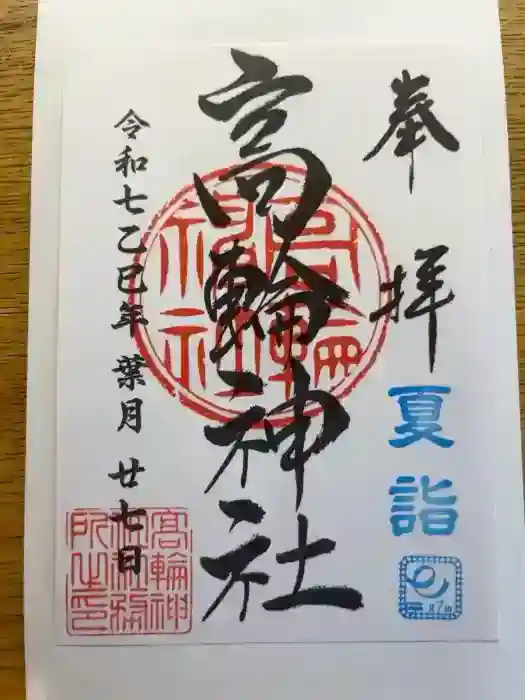 奉拝
夏詣
高輪神社
令和七乙巳年 葉月 廿七日
高輪神
社社務
所之印